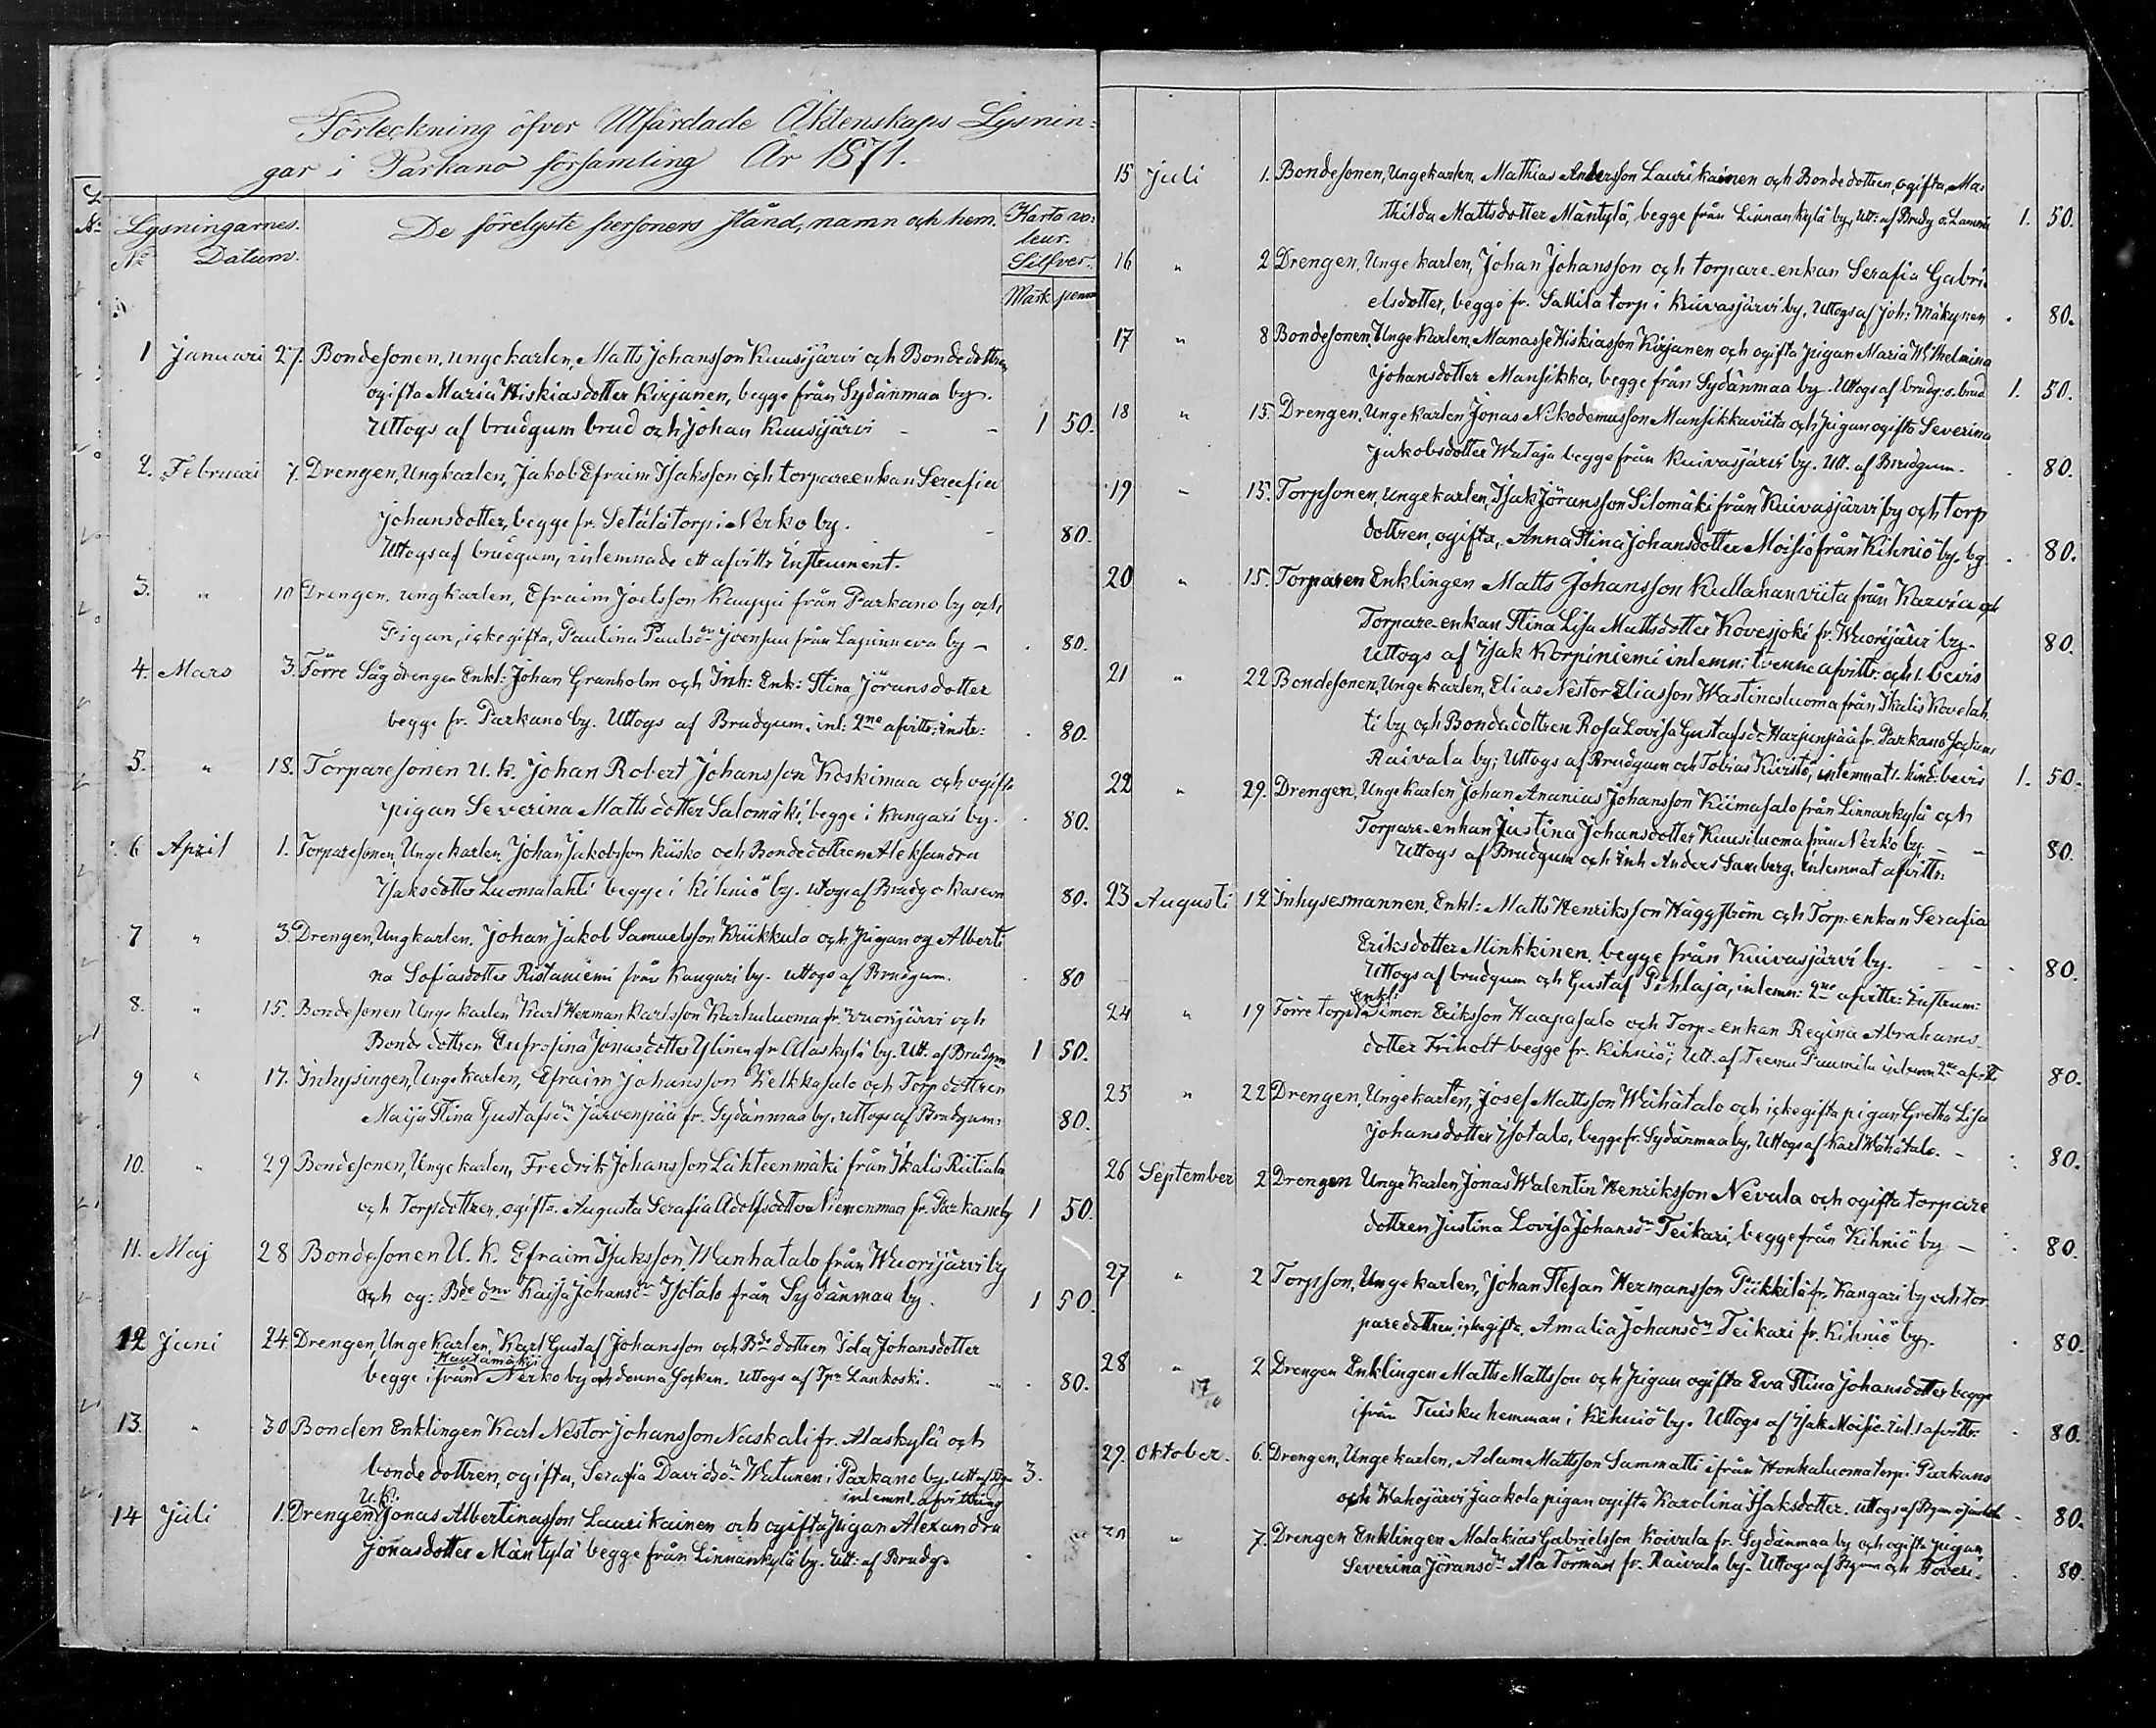 Förteckning öfver Utfärdade Äktenskaps Lysnin=
gar i Parkano församling År 1871.
Lysningarnes.
No Datum.
De förelyste personers stånd, namn och hem.
Karta va=
leur.
Silfver.
Mark penni
1 Januari 27. Bondesonen, ungekarlen, Matts Johansson Kuusijärvi och Bondedottren
ogifta Maria Hiskiasdotter Kirjanen, begge från Sydänmaa by.
Uttogs af brudgum brud och Johan Kuusijärvi - - 1 50.
2. Februari 7. Drengen, Ungkarlen, Jakob Efraim Isaksson och torpareenkan Serafia
Johansdotter, begge fr. Setälä torp i Nerko by. - 80.
Uttogs af brudgum, inlemnade ett afvittr Instrument.
3. " 10 Drengen, ungkarlen, Efraim Joelsson Kauppi från Parkano by och
Pigan, ickegifta, Paulina Paulsdr Joensuu från Lapinneva by - . 80.
4. Mars 3. Förre Sågdrengen Enkl: Johan Granholm och Inh: Enk: Stina Jöransdotter
begge fr. Parkano by. Uttogs af Brudgum. inl: 2ne afvittr: instr: . 80.
5. " 18. Torparesonen U. K. Johan Robert Johansson Koskimaa och ogifta
pigan Severina Mattsdotter Salomäki, begge i Kangari by. . 80.
6 April 1. Torparesonen, Ungekarlen, Johan Jakobsson Kiisko och Bondedottren Aleksandra
Isaksdotter Luomalahti begge i Kihniö by. utogs af Brudg o 80.
7 " 3. Drengen, Ungkarlen, Johan Jakob Samuelsson Kiikkula och Pigan og Alberti
na Sofiasdotter Ristaniemi från Kangari by. uttogs af Brudgum. . 80
8. " 15. Bondesonen Ungekarlen Karl Herman Karlsson Karhuluoma fr. Vuorijärvi och
Bondedottren Eufrosina Jonasdotter Ylinen fr Alaskylä by. Utt. af Brudgm 1 50.
9 " 17. Inhysingen, Ungekarlen, Efraim Johansson Kelkkasalo och Torpdottren
Maija Stina Gustafsdr Järvenpää fr. Sydänmaa by, uttogs af Brudgum. 80.
10. " 29 Bondesonen, Ungekarlen, Fredrik Johansson Lähteenmäki från Ikalis Riitiala
och Torpdottren, ogifta. Augusta Serafia Adolfsdotter Niemenmaa fr. Parkano by 1 50.
11. Maj 28 Bondesonen U. K. Efraim Isaksson Wanhatalo från Wuorijärvi by
och og: Bde dnr Kaisa Johansdr Isotalo från Sydänmaa by. 1 50.
12 Juni 24. Drengen, Ungekarlen, Karl Gustaf Johansson och Bde dottren Ida Johansdotter
Hautamäki
begge ifrån Nerko by och denna Socken. Uttogs af Tpn Lankoski. - . 80.
13. " 30 Bonden Enklingen Karl Nestor Johansson Naskali fr. Alaskylä och
bondedottren, ogifta, Serafia Davidsdr Watunen i Parkano by. 3.
inlemn. afvittring
U.K.
14 Juli 1. Drengen Jonas Albertinasson Laurikainen och ogifta Pigan Alexandra
Jonasdotter Mäntylä begge från Linnankylä by. Utt: af Brudg. .
15 Juli 1. Bondesonen, Ungekarlen, Mathias Andersson Laurikainen och Bondedottren, ogifta, Ma-
thilda Mattsdotter Mäntylä, begge från Linnankylä by, Utt: af Brudg o. 1. 50.
16 " 2 Drengen, Ungekarlen, Johan Johansson och torpare-enkan Serafia Gabri
elsdotter, begge fr. Sattila torp i Kuivasjärvi by. Uttogs af Joh: Mäkynen . 80.
17 " 8 Bondesonen, Ungekarlen, Manasse Hiskiasson Kirjanen och ogifta pigan Maria Wilhelmina
Johansdotter Mansikka, begge från Sydänmaa by. Uttogs af brudg: o. brud 1. 50.
18 " 15. Drengen, Ungekarlen Jonas Nikodemusson Mansikkaviita och Pigan ogifta Severina
Jakobsdotter Wataja begge från Kuivasjärvi by. Utt. af Brudgum. . 80.
19 - 15. Torpsonen, Ungekarlen, Isak Jöransson Silomäki från Kuivasjärvi by och torp
dottren, ogifta, Anna Stina Johansdotter Moisio från Kihniö by. . 80.
20 " 15. Torparen Enklingen Matts Johansson Kullahanviita från Karvia och
Torpare-enkan Stina Lisa Mattsdotter Kovesjoki fr. Wuorijärvi by. 80.
Uttogs af Isak Korpiniemi inlemn: tvenne afvittr: och 1. bevis
21 " 22 Bondesonen, Ungekarlen, Elias Nestor Eliasson Wastinesluoma från Ikalis Kovelah
ti by och Bondedottren Rosa Lovisa Gustafsdr Harjunpää fr. Parkano Sockens
Raivala by; Uttogs af Brudgum och Tobias Kivistö, inlemnat 1. hind. bevis 1. 50.
22 " 29. Drengen, Ungekarlen Johan Ananias Johansson Kiimasalo från Linnankylä och
Torpare-enkan Justina Johansdotter Kuusiluoma från Nerko by. - - 80.
Uttogs af Brudgum och Inh Anders Samberg, inlemnat afvittr:
23 Augusti 12 Inhysesmannen, Enkl: Matts Henriksson Häggström och Torp-enkan Serafia
Eriksdotter Minkkinen, begge från Kuivasjärvi by. - - . 80.
Uttogs af brudgum och Gustaf Pihlaja, inlemn: 2ne afvittr: Instrum:
Enkl:
24 " 19 Förre torpn Simon Eriksson Haapasalo och Torp-enkan Regina Abrahams-
dotter Friholt begge fr. Kihniö; Utt. af Teemu Puumila inlemn 2ne afvittr 80.
25 " 22 Drengen, Ungekarlen, Josef Mattsson Wähätalo och ickegifta pigan Gretha Lisa
Johansdotter Isotalo, begge fr. Sydänmaa by, Uttogs af Karl Wähätalo. - : 80.
26 September 2 Drengen Ungekarlen, Jonas Walentin Henriksson Nevala och ogifta torpare
dottren Justina Lovisa Johansdr Teikari, begge från Kihniö by - . 80.
27 " 2 Torpsson, Ungekarlen, Johan Stefan Hermansson Piikkilä fr. Kangari by och tor
paredottren, ickegifta, Amalia Johansdr Teikari fr. Kihniö by. . 80.
28 " 2 Drengen Enklingen Matts Mattsson och Pigan ogifta Eva Stina Johansdotter, begge
ifrån Tuisku hemman i Kihniö by. Uttogs af Isak Moisio. inl. 1 afvittr. . 80.
29. Oktober. 6. Drengen, Ungekarlen, Adam Mattsson Sammatti ifrån Honkaluoma torp i Parkano
och Wahojärvi Jaakola pigan ogifta Karolina Isaksdotter. Uttogs af - 80.
30 " 7. Drengen Enklingen Malakias Gabrielsson Koivula fr. Sydänmaa by och ogifta pigan
Severina Jöransdr Ala Törmäs fr. Raivala by. Uttogs af och Toveri. . 80.